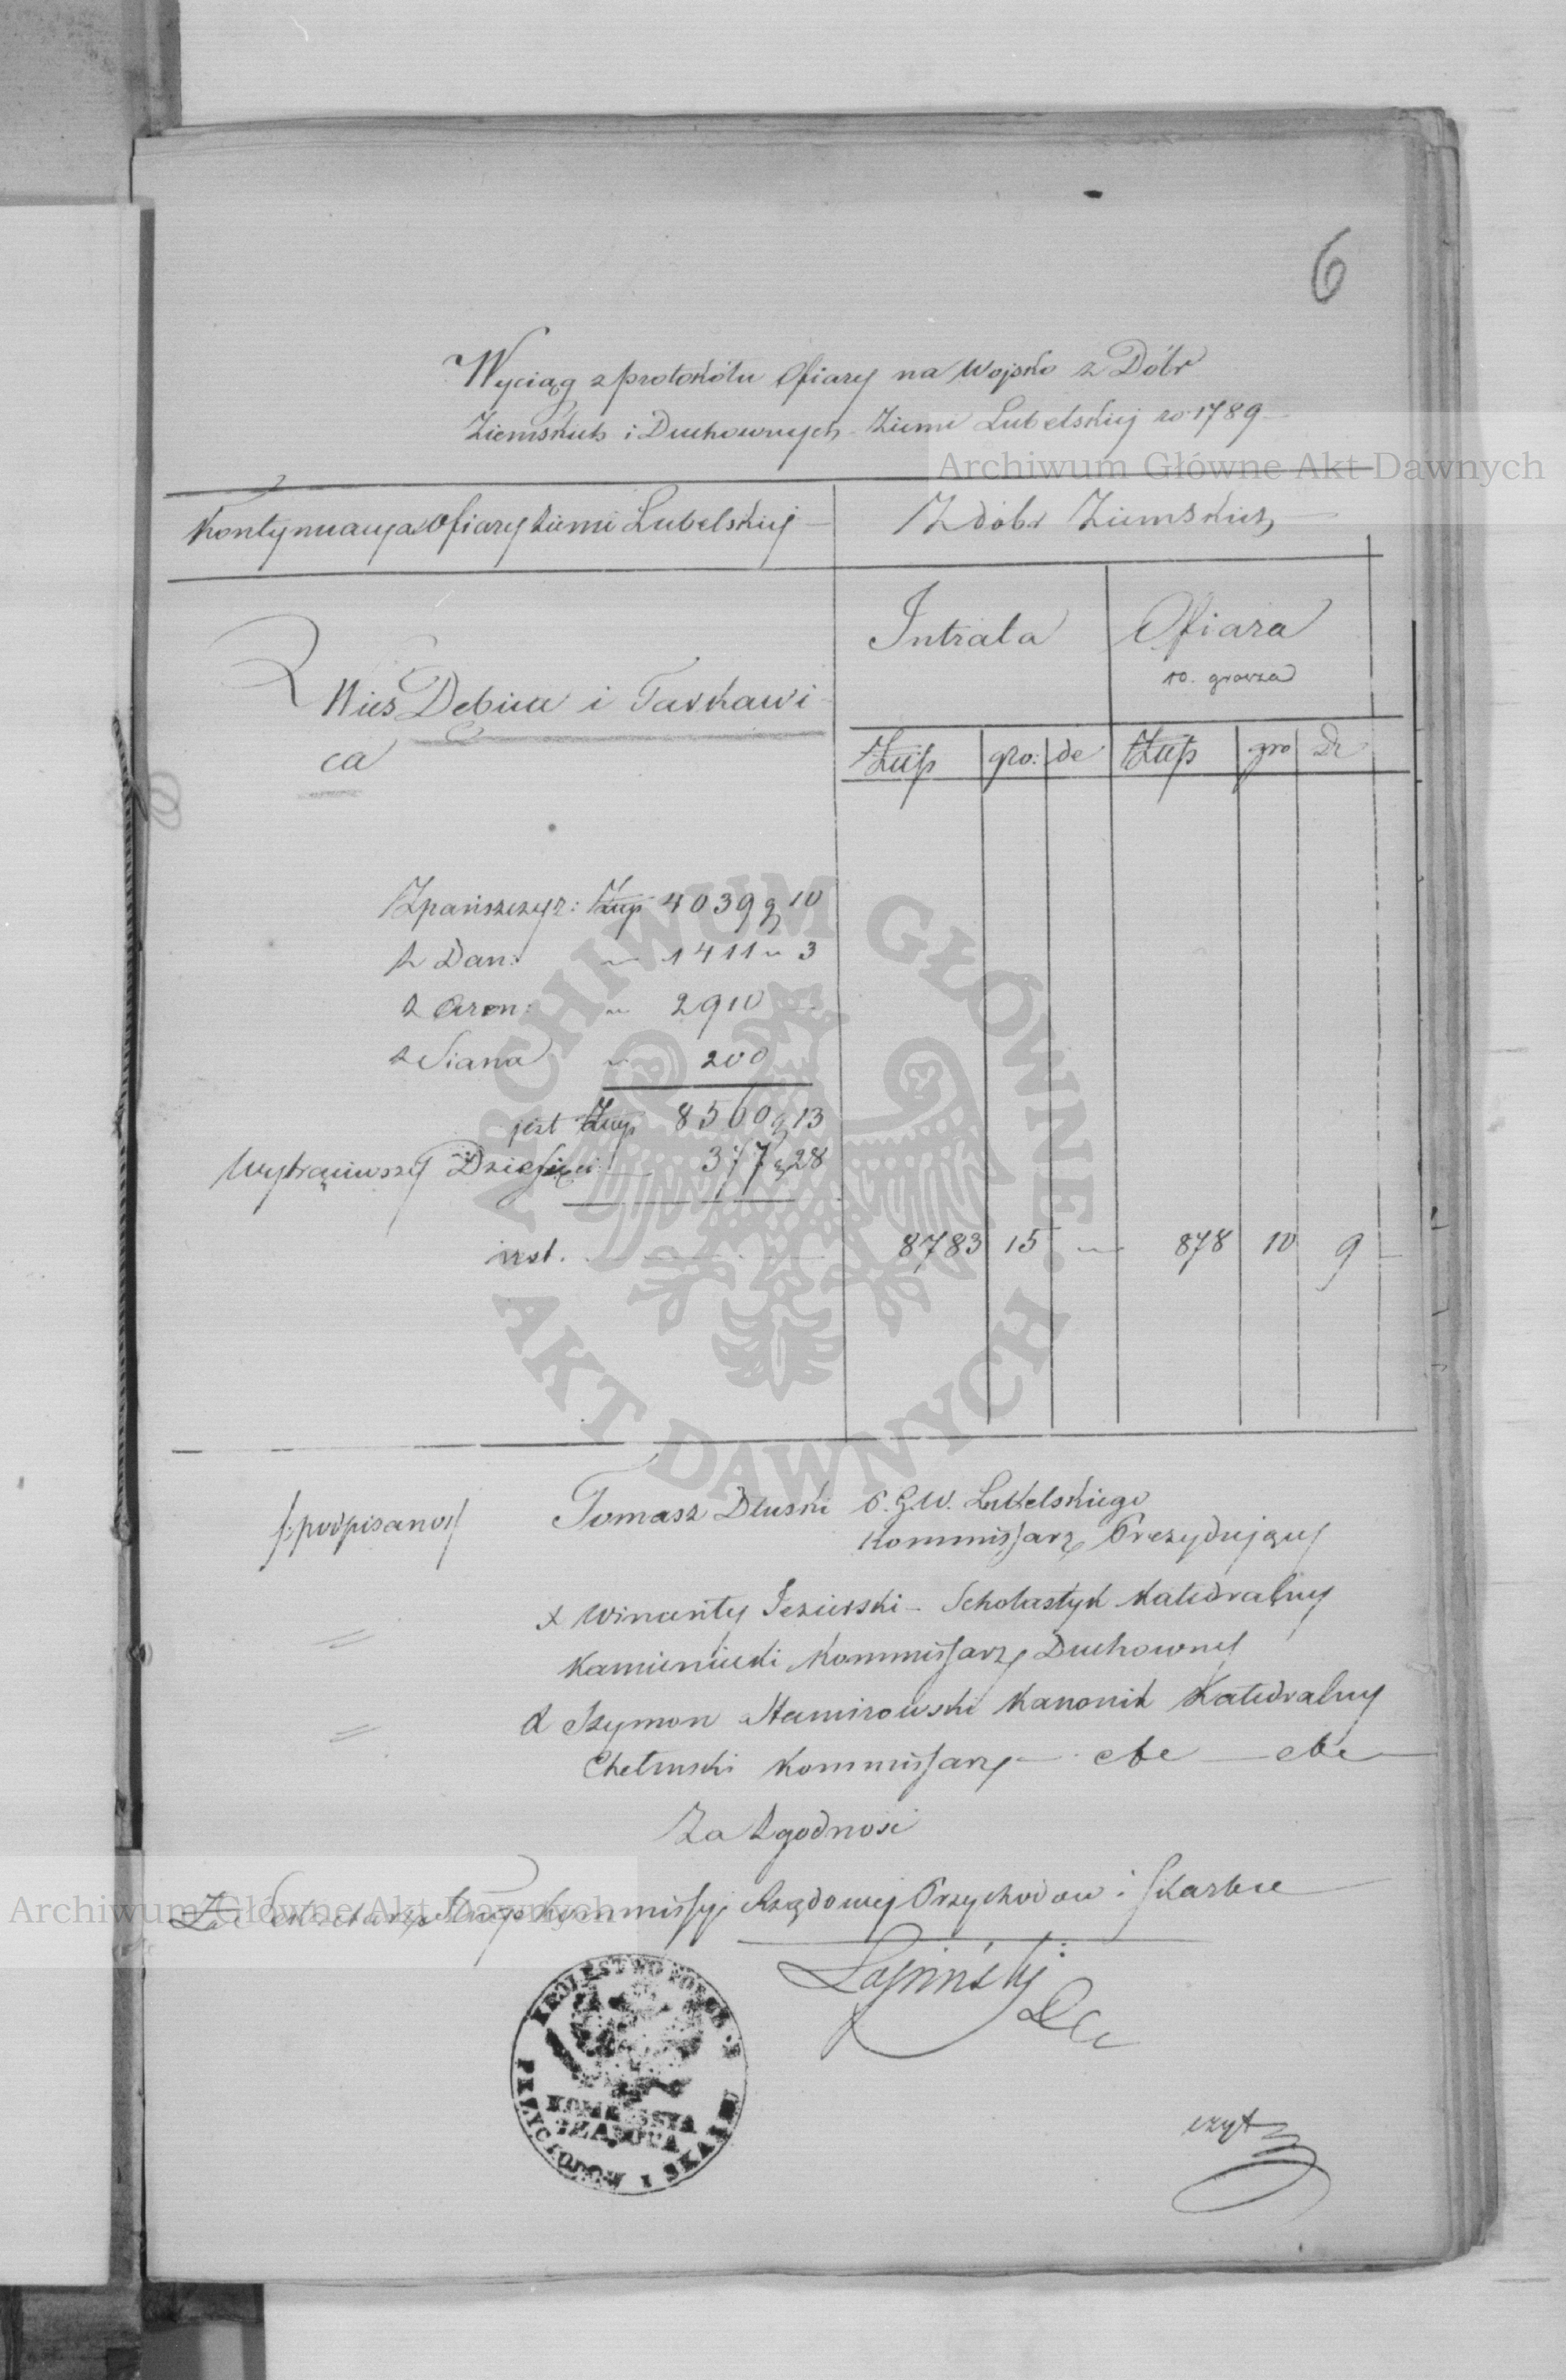 6
Wyciąg z protokółu Ofiary na Wojsko z Dóbr
Ziemskich i Duchownych Ziemi Lubelskiej ro 1789
Archiwum Główne Akt Dawnych
Kontynuacya Ofiary Ziemi Lubelskiej
Z dóbr Ziemskich
Intrata
Ofiara
10. grosza
Wieś Dębica i Tarkawi
ca
Złłp gro: de Złłp gro Dr
Z pańszczyz: Złłp 4039 g 10
z Dan: " 1411 " 3
z Aren: " 2910
z Siana " 200
jest Złłp 8560 g 13
Wytrąciwszy Dziesięci 377 g 28
jest. 8783 15 — 878 10 9
ARCHIWUM GŁÓWNE AKT DAWNYCH
/:podpisano:/ Tomasz Dłuski P.G.W. Lubelskiego
Kommissarz Prezydujący
" X Wincenty Jezierski Scholastyk Katedralny
Kamieniecki Kommissarz Duchowny
" X Szymon Kanonik Katedralny
Chełmski Kommissarz etc etc
Za Zgodność
Archiwum Główne Akt Dawnych
Kommissyi Rządowej Przychodow i Skarbu
Łapiński
KROLESTWO POLSK
KOMMISSYA
RZĄDOWA
PRZYCHODOW I SKARBU
czyt